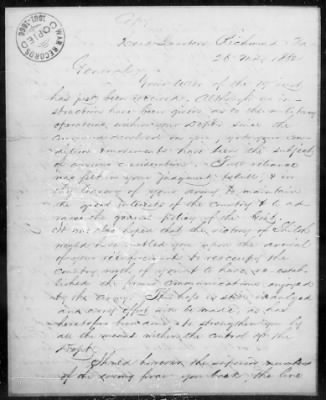 WAR RECORDS
COPIED
1861-1865
Copy
Head Quarters, Richmond, Va
26 May 1862
General,
Your letter of the 19 inst
has just been received. Although no in-
structions have been given as to the military
operations within your Dept since the
command devolved on you, yet your con-
dition & movements have been the subject
of anxious consideration. Full reliance
was felt in your judgment & skill, & in
the bravery of your army to maintain
the great interests of the Country & to ad-
vance the general policy of the Govt.
It was also hoped that the victory of Shiloh
would have enabled you upon the arrival
of your reinforcements to reoccupy the
country north of you & to have re-estab-
lished the former communications enjoyed
by the army. This hope is still indulged
and every effort will be made, as has
heretofore been done to strengthen you by
all the means within the control of the
Dept.
Should however the superior numbers
of the enemy force you back, the line